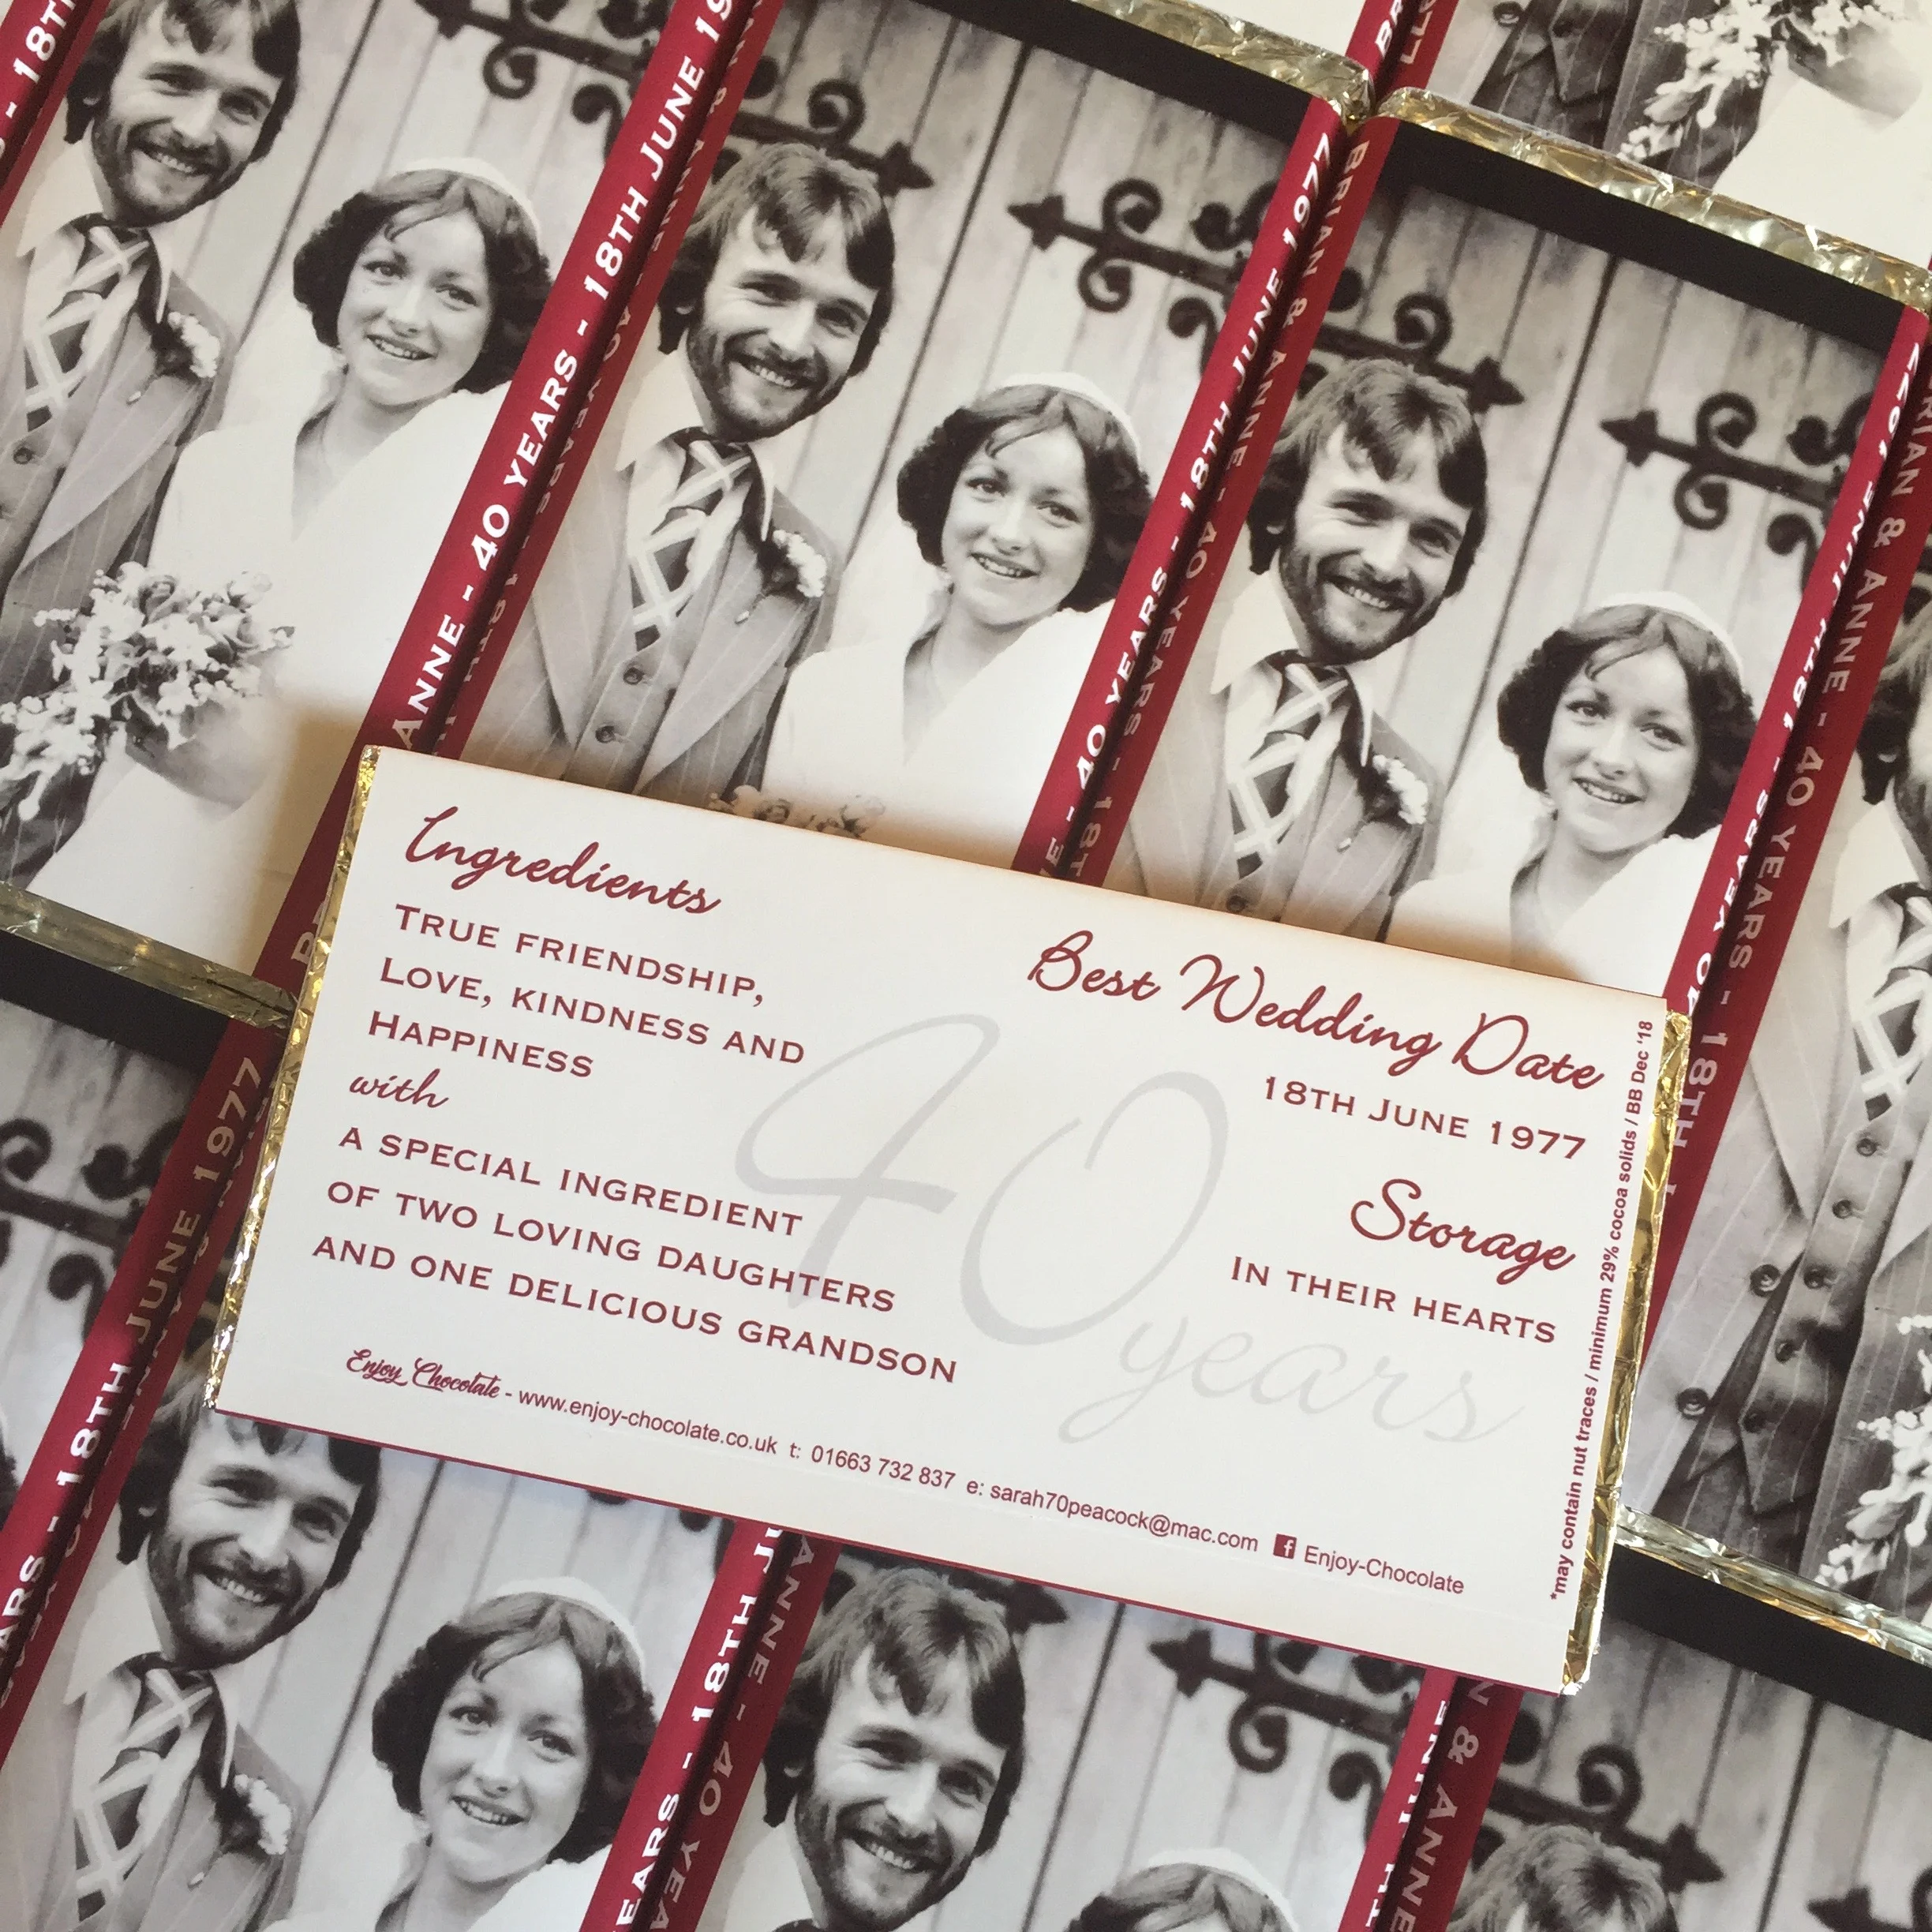 BRIAN & ANNE - 40 YEARS - 18TH JUNE 1977
Ingredients
TRUE FRIENDSHIP,
LOVE, KINDNESS AND
HAPPINESS
with
A SPECIAL INGREDIENT
OF TWO LOVING DAUGHTERS
AND ONE DELICIOUS GRANDSON
Best Wedding Date
18TH JUNE 1977
Storage
IN THEIR HEARTS
40
years
Enjoy Chocolate - www.enjoy-chocolate.co.uk t: 01663 732 837 e: sarah70peacock@mac.com f Enjoy-Chocolate
*may contain nut traces / minimum 29% cocoa solids / BB Dec '18